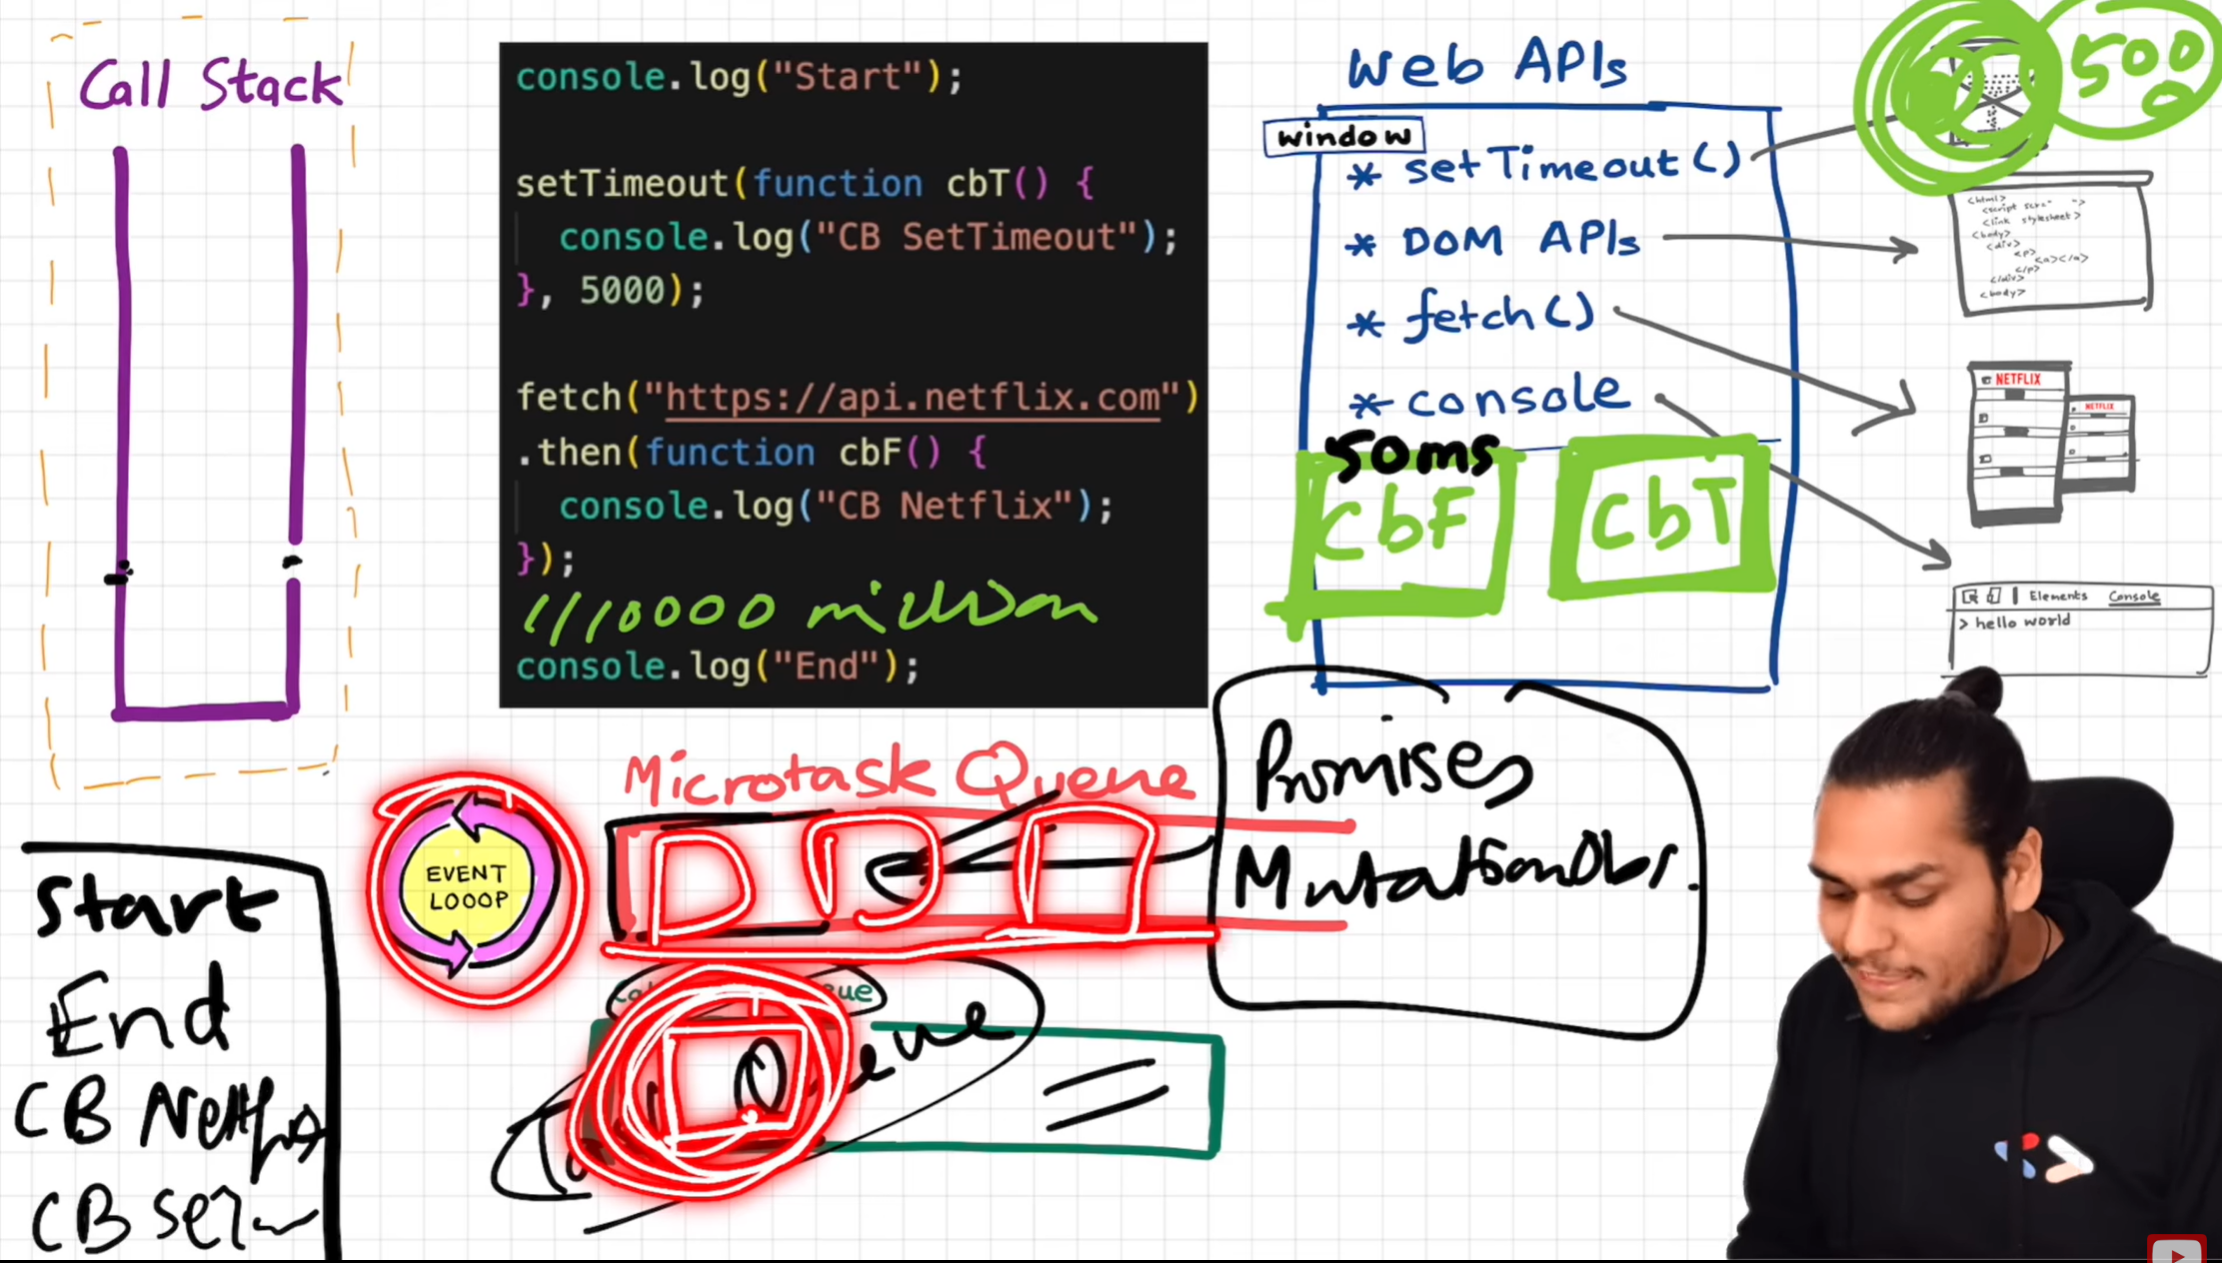 Call Stack
console.log("Start");
setTimeout(function cbT() {
console.log("CB SetTimeout");
}, 5000);
fetch("https://api.netflix.com")
.then(function cbF() {
console.log("CB Netflix");
});
//10000 million
console.log("End");
Web APIs
window
* setTimeout()
* DOM APIs
* fetch()
* console
50ms
cbF
cbT
5000
<html>
<link stylesheet>
<body>
<div>
<p>
<a></a>
</p>
</div>
<body>
NETFLIX
NETFLIX
Elements Console
> hello world
Microtask Queue
EVENT
LOOOP
Promises
MutationObs.
Queue
Start
End
CB Netflix